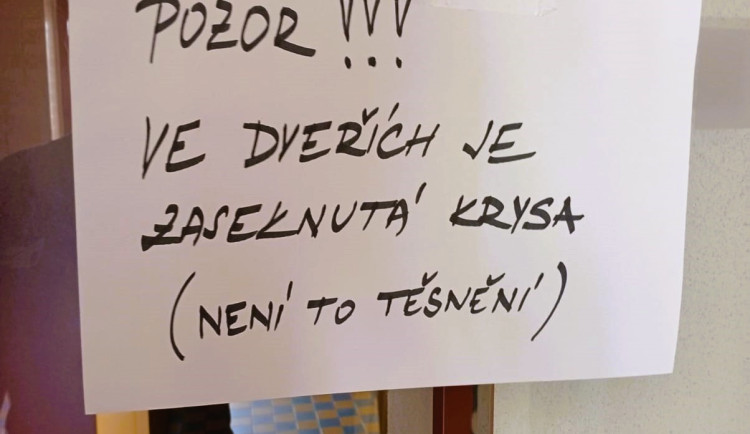 POZOR !!!
VE DVEŘÍCH JE
ZASEKNUTÁ KRYSA
(NENÍ TO TĚSNĚNÍ)